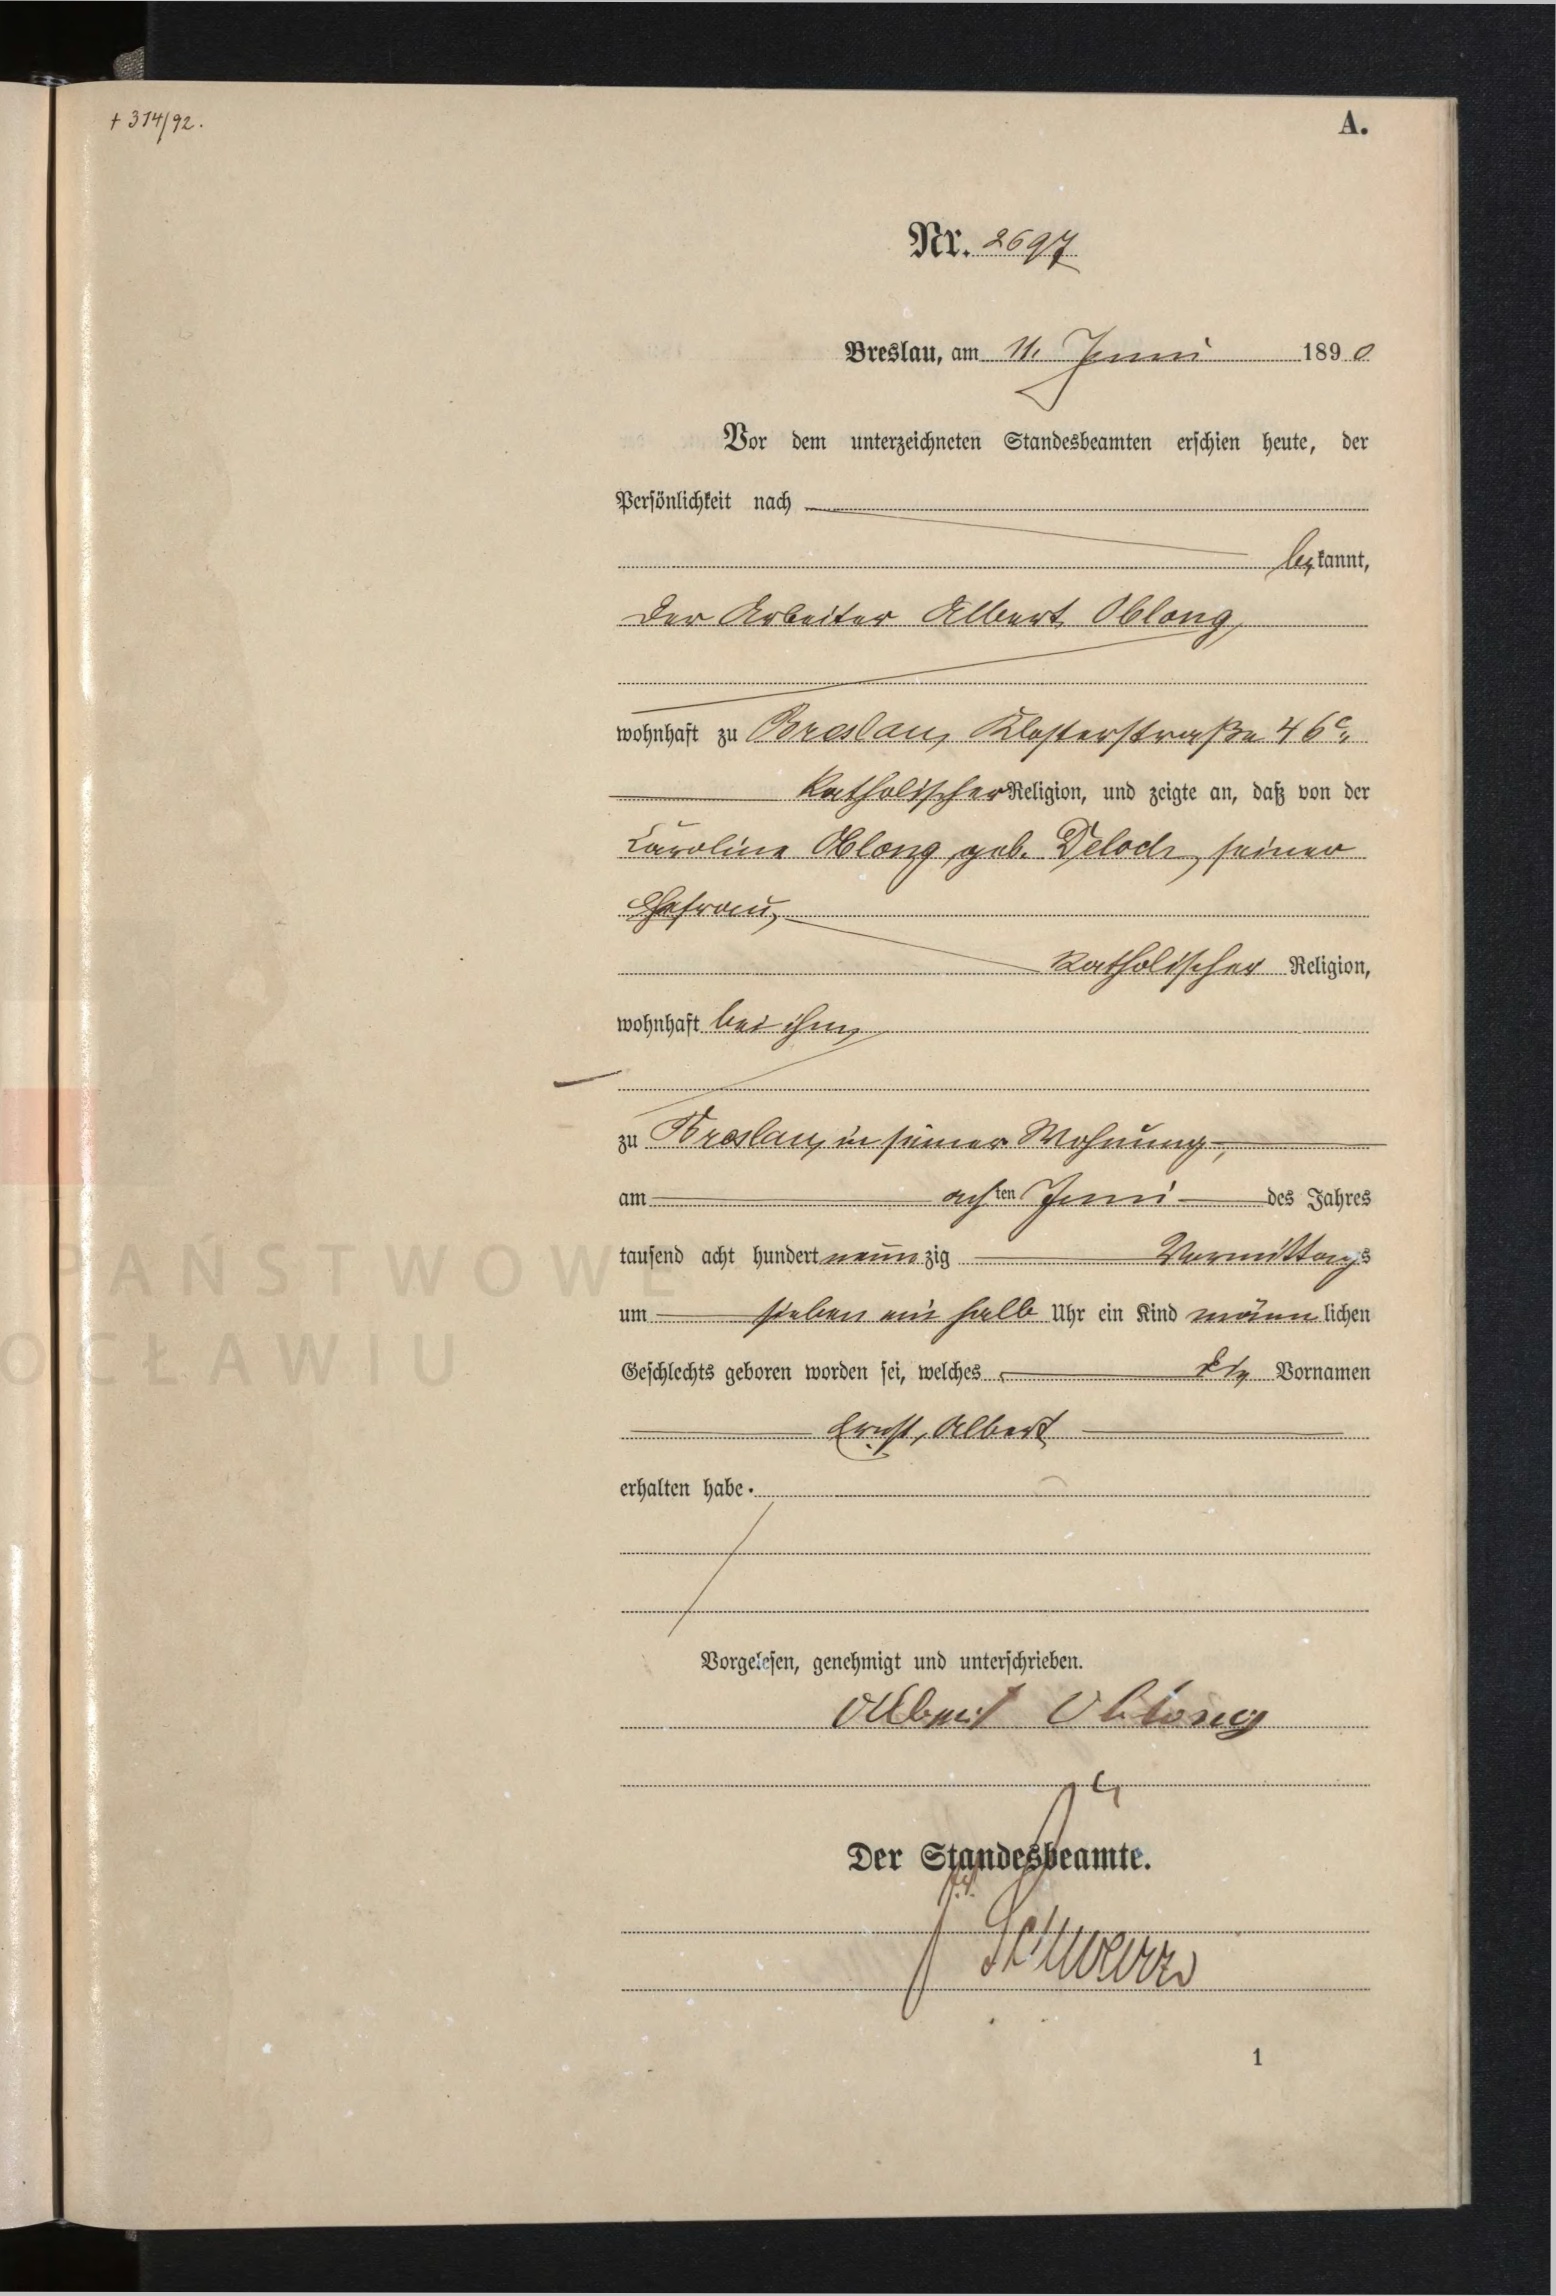 + 314/92.
A.
Nr. 2697
Breslau, am 11. Juni 1890
Vor dem unterzeichneten Standesbeamten erschien heute, der
Persönlichkeit nach
bekannt,
der Arbeiter Albert Oblong,
wohnhaft zu Breslau, Klosterstraße 46c,
katholischer Religion, und zeigte an, daß von der
Caroline Oblong geb. Deloch, seiner
Ehefrau,
katholischer Religion,
wohnhaft bei ihm,
zu Breslau, in seiner Wohnung,
am achten Juni des Jahres
tausend acht hundert neunzig Vormittags
um sieben ein halb Uhr ein Kind männlichen
Geschlechts geboren worden sei, welches die Vornamen
Ernst, Albert
erhalten habe.
Vorgelesen, genehmigt und unterschrieben.
Albert Oblong
Der Standesbeamte.
1
PAŃSTWOWE
OCŁAWIU